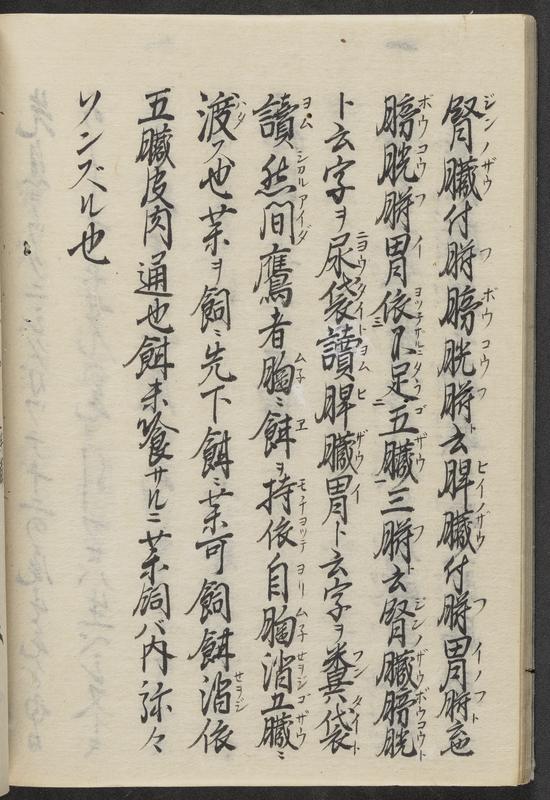 腎臓付腑膀胱腑云脾臓付腑胃腑也
膀胱腑胃依不足五臓三腑云腎臓膀胱
ト云字ヲ尿袋讀脾臓胃ト云字ヲ糞袋
讀然間鷹者胸ニ餌ヲ持依自胸消五臓ニ
渡ス也薬ヲ飼ニ先下餌ニ薬可飼餌消依
五臓皮肉通也餌未喰サルニ薬飼バ内弥々
ソンズル也